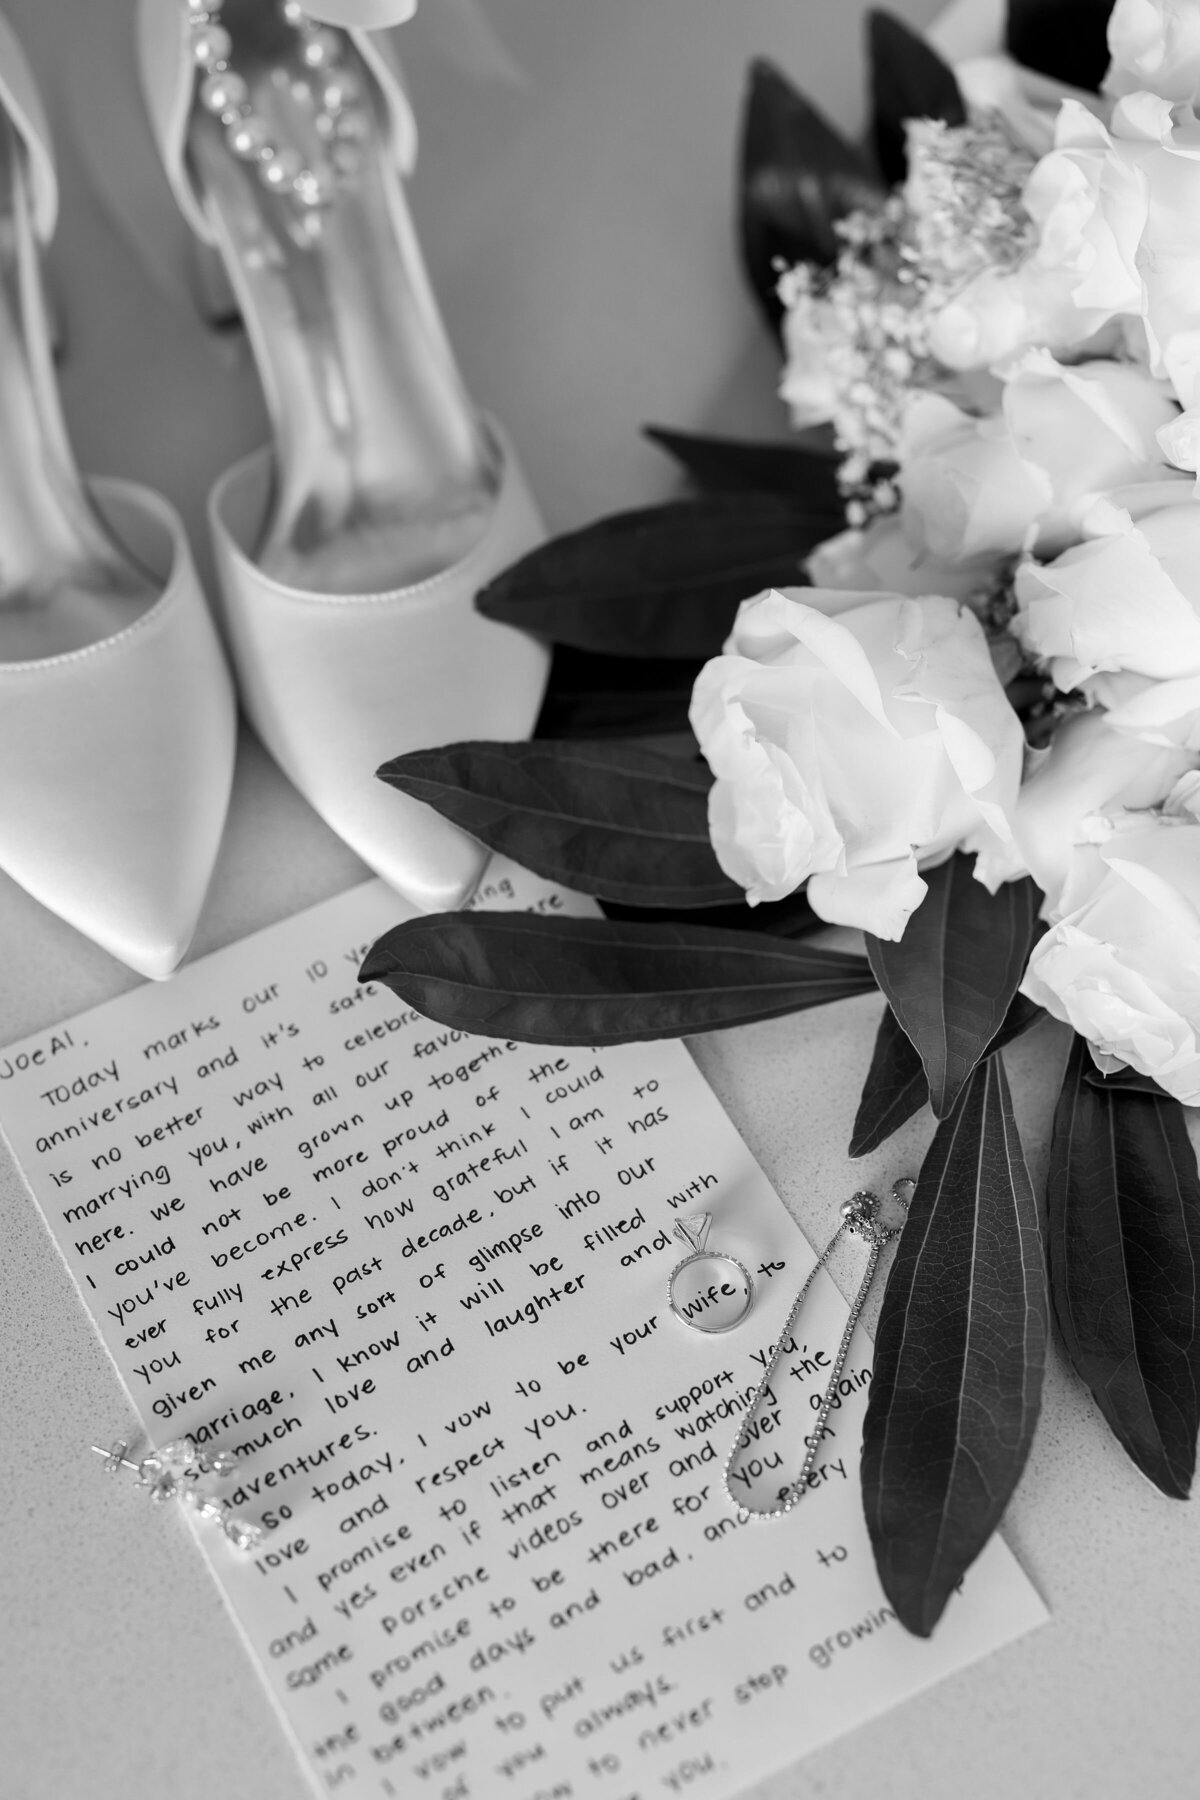 JoeAl,
Today marks our 10
anniversary and it's safe
is no better way to
marrying you, with all our
here. we have grown up
I could not be more proud of the
you've become. I don't think I could
ever fully express how grateful I am to
you for the past decade, but if it has
given me any sort of glimpse into our
marriage, I know it will be filled with
so much love and laughter and
adventures.
so today, I vow to be your wife, to
love and respect you.
I promise to listen and support you,
and yes even if that means watching the
same porsche videos over and over again
I promise to be there for you on
the good days and bad, and every
in between.
I vow to put us first and to
of you always.
to never stop growing
you.